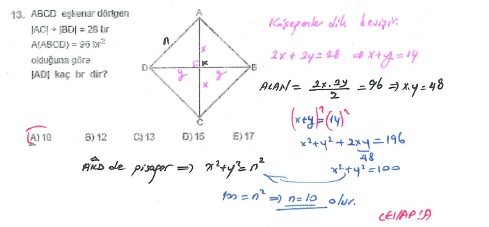 13. ABCD eşkenar dörtgen
|AC| + |BD| = 28 br
A(ABCD) = 96 br²
olduğuna göre
|AD| kaç br dir?
A
n
x
D
y
K
y
B
x
C
A) 10 B) 12 C) 13 D) 15 E) 17
Köşegenler dik kesişir.
2x + 2y = 28 ⇒ x + y = 14
ALAN = 2x.2y / 2 = 96 ⇒ x.y = 48
(x+y)² = (14)²
x² + y² + 2xy = 196
48
x² + y² = 100
AKD de pisagor ⇒ x² + y² = n²
100 = n² ⇒ n = 10 olur.
CEVAP: A